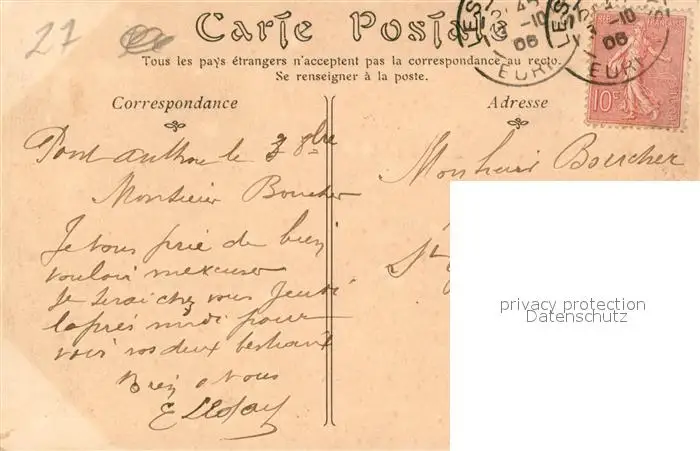 27
Carte Postale
Tous les pays étrangers n'acceptent pas la correspondance au recto.
Se renseigner à la poste.
Correspondance
Pont-authou le 3 8bre
Monsieur Boucher
Je vous prie de bien
vouloir mexcuser
Je serai chez vous Jeudi
laprès midi pour
voir vos deux
Bien a vous
Adresse
Monsieur Boucher
St
10c
06
EURE
06
EURE
privacy protection
Datenschutz